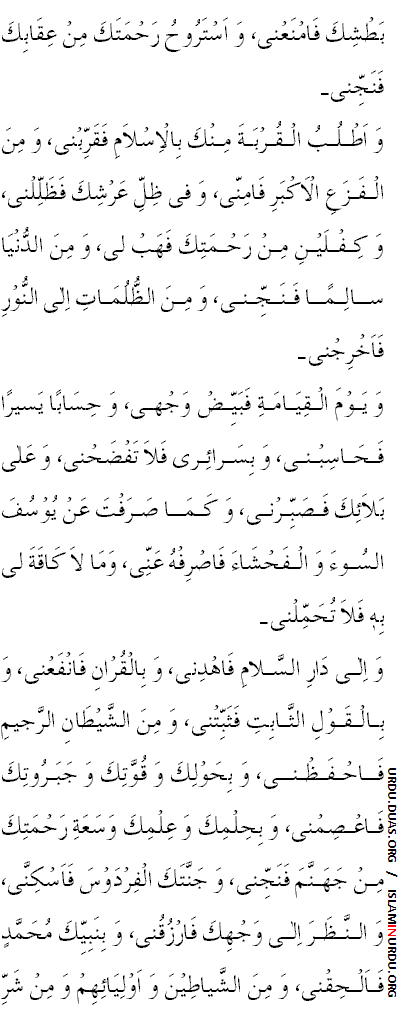 بَطْشِكَ فَامْنَعْنِی، وَ اَسْتَرْوِحُ رَحْمَتَكَ مِنْ عِقَابِكَ
فَنَجِّنِی۔
وَ اَطْلُبُ الْقُرْبَةَ مِنْكَ بِالْاِسْلَامِ فَقَرِّبْنِی، وَ مِنَ
الْفَزَعِ الْاَكْبَرِ فَامِنِّی، وَ فِی ظِلِّ عَرْشِكَ فَظَلِّلْنِی،
وَ كِفْلَیْنِ مِنْ رَحْمَتِكَ فَهَبْ لِی، وَ مِنَ الدُّنْیَا
سَالِمًا فَنَجِّنِی، وَ مِنَ الظُّلُمَاتِ اِلَی النُّوْرِ
فَاَخْرِجْنِی۔
وَ یَوْمَ الْقِیَامَةِ فَبَیِّضْ وَجْهِی، وَ حِسَابًا یَسِیرًا
فَحَاسِبْنِی، وَ بِسَرَائِرِی فَلَا تَفْضَحْنِی، وَ عَلٰی
بَلَائِكَ فَصَبِّرْنِی، وَ كَمَا صَرَفْتَ عَنْ یُوْسُفَ
السُوءَ وَ الْفَحْشَاءَ فَاصْرِفْهُ عَنِّی، وَمَا لَا كَاقَةَ لِی
بِهٖ فَلَا تُحَمِّلْنِی۔
وَ اِلٰی دَارِ السَّلَامِ فَاهْدِنِی، وَ بِالْقُرْانِ فَانْفَعْنِی، وَ
بِالْقَوْلِ الثَّابِتِ فَثَبِّتْنِی، وَ مِنَ الشَّیْطَانِ الرَّجِیمِ
فَاحْفَظْنِی، وَ بِحَوْلِكَ وَ قُوَّتِكَ وَ جَبَرُوتِكَ
فَاعْصِمْنِی، وَ بِحِلْمِكَ وَ عِلْمِكَ وَ سَعَةِ رَحْمَتِكَ
مِنْ جَهَنَّمَ فَنَجِّنِی، وَ جَنَّتَكَ الْفِرْدَوْسَ فَاَسْكِنِّی،
وَ النَّظَرَ اِلٰی وَجْهِكَ فَارْزُقْنِی، وَ بِنَبِیِّكَ مُحَمَّدٍ
فَاَلْحِقْنِی، وَ مِنَ الشَّیاطِیْنَ وَ اَوْلِیَائِهِمْ وَ مِنْ شَرِّ
URDU.DUAS.ORG / ISLAMINURDU.ORG